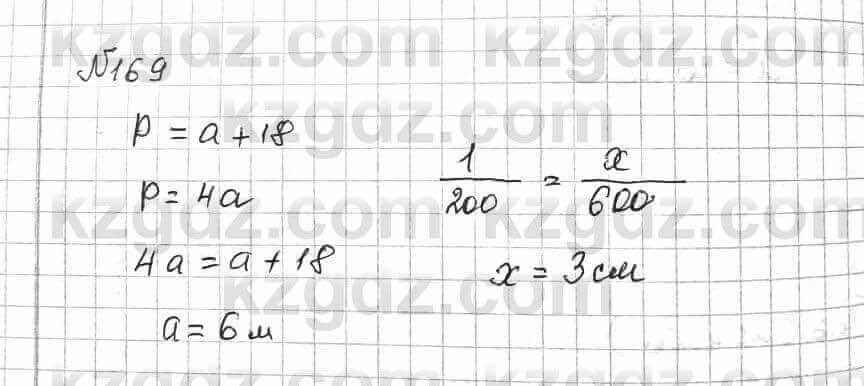 №169
P = a + 18
P = 4a
4a = a + 18
a = 6 м
1/200 = x/600
x = 3 см
kzgdz.com
kzgdz.com
kzgdz.com
kzgdz.com
kzgdz.com
kzgdz.com